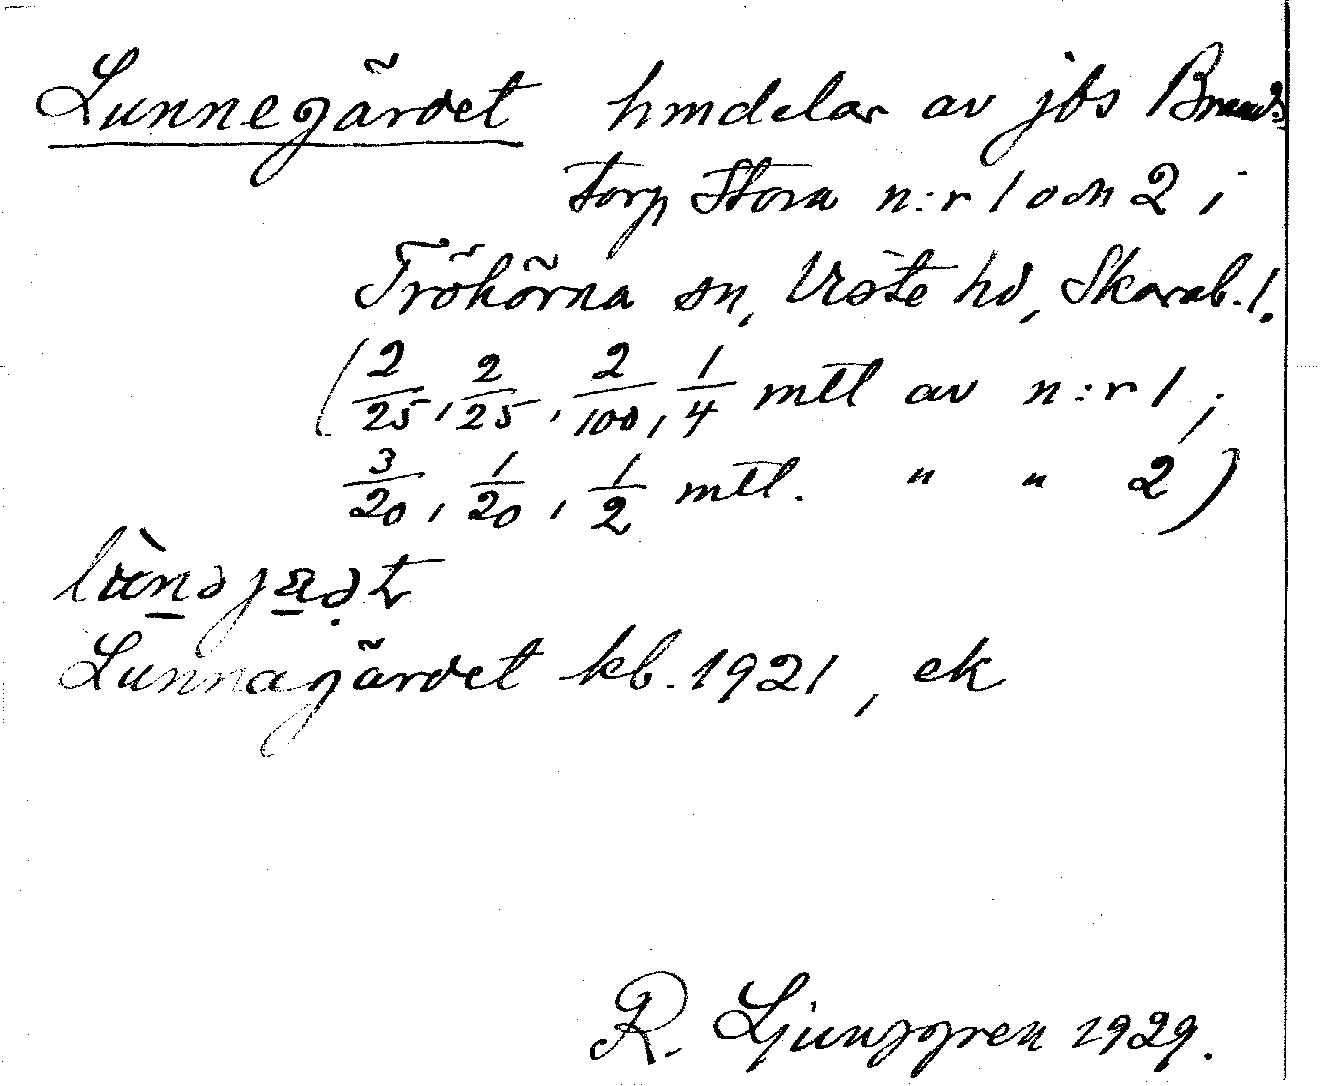 Lunnegärdet hmdelar av jbs Brands
torp Stora n:r 1 och 2 i
Trökörna sn, Viste hd, Skarab. l.
(2/25, 2/25, 2/100, 1/4 mtl av n:r 1;
3/20, 1/20, 1/2 mtl. " " 2)
Lunnagärdet kb. 1921, ek
R. Ljunggren 1929.